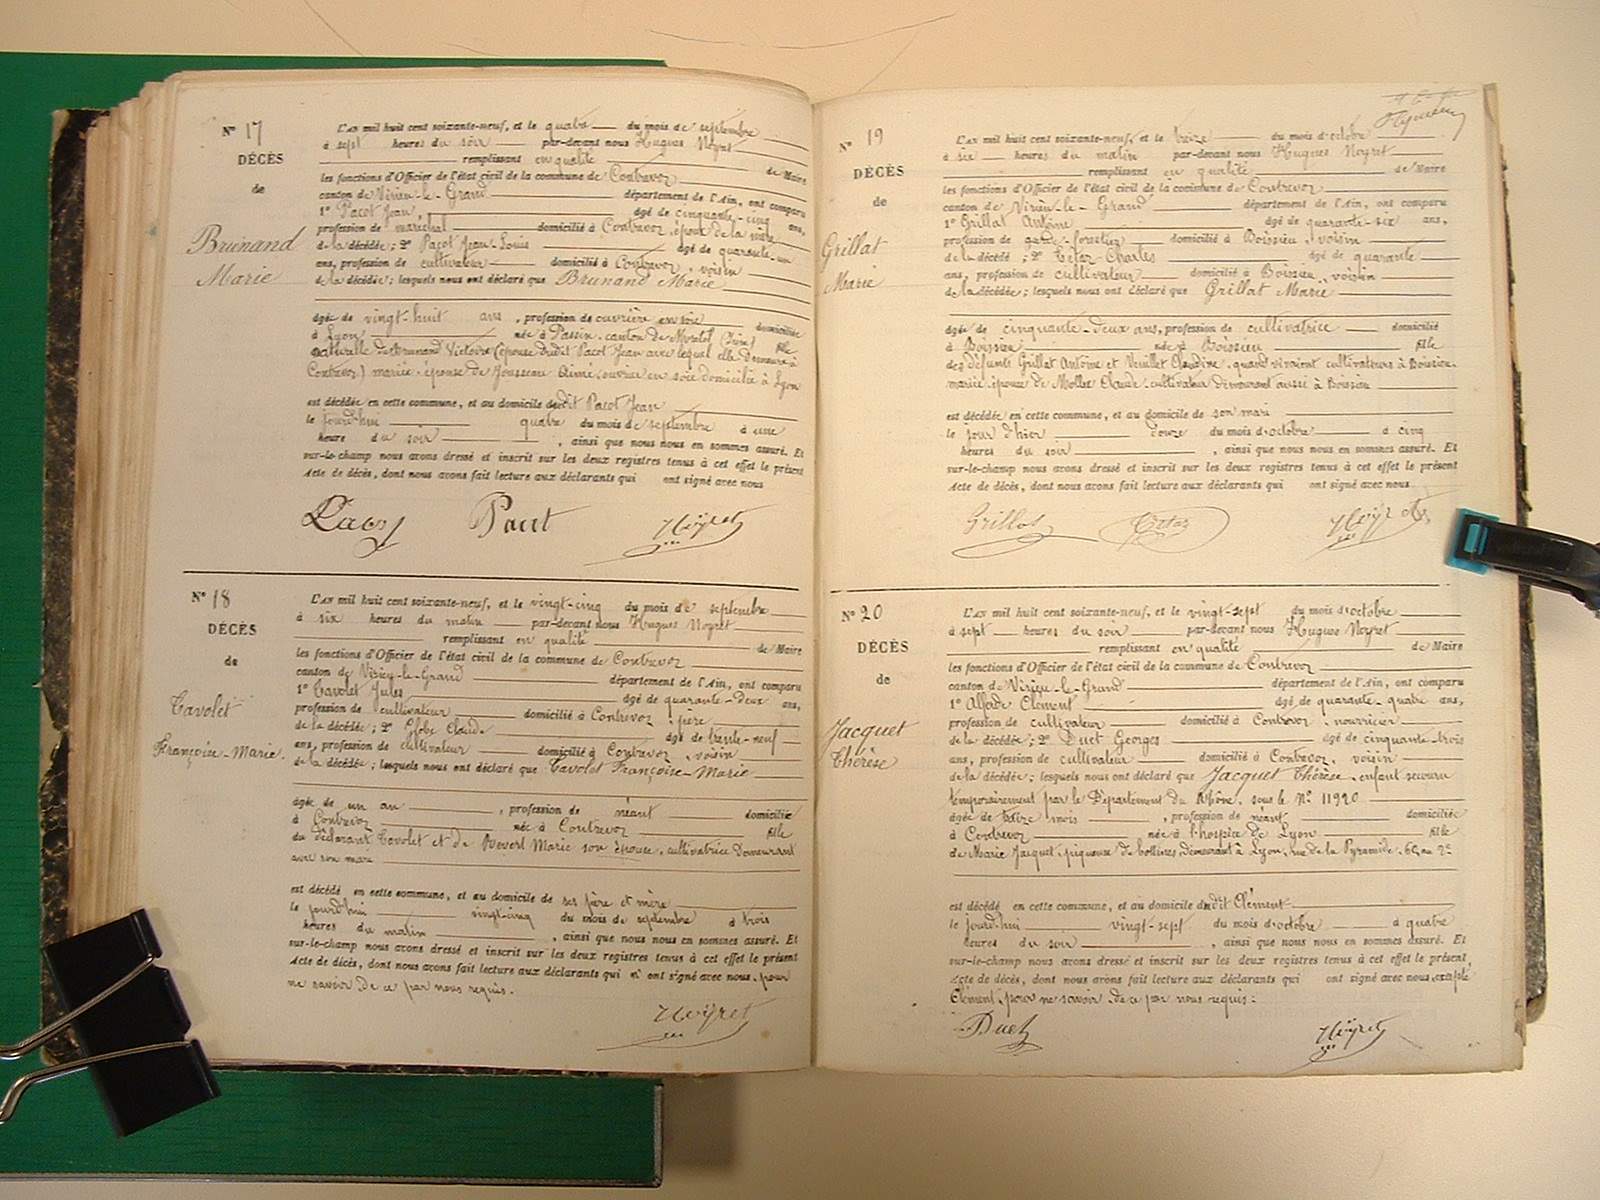 N° 17
DÉCÈS
de
Brunand
Marie
L'AN mil huit cent soixante-neuf, et le quatre du mois de septembre
à sept heures du soir par-devant nous Hugues Neyret
remplissant en qualité de Maire
les fonctions d'Officier de l'état civil de la commune de Contrevoz
canton de Virieu-le-Grand département de l'Ain, ont comparu
1° Pacot Jean, âgé de cinquante-cinq ans,
profession de maréchal domicilié à Contrevoz, époux de la mère
de la décédée; 2° Pacot Jean-Louis âgé de quarante-un
ans, profession de cultivateur domicilié à Contrevoz, voisin
de la décédée; lesquels nous ont déclaré que Brunand Marie
âgée de vingt-huit ans, profession de ouvrière en soie domiciliée
à Lyon née à Passin, canton de (Isère) fille
naturelle de Brunand Victoire (épouse dudit Pacot Jean avec lequel elle demeure à
Contrevoz) mariée, épouse de Jousseau Aimé, ouvrier en soie domicilié à Lyon
est décédée en cette commune, et au domicile dudit Pacot Jean
le jourd'hui quatre du mois de septembre à une
heure du soir, ainsi que nous nous en sommes assuré. Et
sur-le-champ nous avons dressé et inscrit sur les deux registres tenus à cet effet le présent
Acte de décès, dont nous avons fait lecture aux déclarants qui ont signé avec nous
Pacot Neyret
N° 18
DÉCÈS
de
Cavolet
Françoise-Marie.
L'AN mil huit cent soixante-neuf, et le vingt-cinq du mois de septembre
à six heures du matin par-devant nous Hugues Neyret
remplissant en qualité de Maire
les fonctions d'Officier de l'état civil de la commune de Contrevoz
canton de Virieu-le-Grand département de l'Ain, ont comparu
1° Cavolet Jules âgé de quarante-deux ans,
profession de cultivateur domicilié à Contrevoz, père
de la décédée; 2° Globe Claude âgé de trente-neuf
ans, profession de cultivateur domicilié à Contrevoz, voisin
de la décédée; lesquels nous ont déclaré que Cavolet Françoise-Marie
âgée de un an, profession de néant domiciliée
à Contrevoz née à Contrevoz fille
du déclarant Cavolet et de Revert Marie son épouse, cultivatrice demeurant
avec son mari
est décédé en cette commune, et au domicile de ses père et mère
le jourd'hui vingt-cinq du mois de septembre à trois
heures du matin, ainsi que nous nous en sommes assuré. Et
sur-le-champ nous avons dressé et inscrit sur les deux registres tenus à cet effet le présent
Acte de décès, dont nous avons fait lecture aux déclarants qui n'ont signé avec nous, pour
ne savoir de ce par nous requis.
Neyret
N° 19
DÉCÈS
de
Grillat
Marie
L'AN mil huit cent soixante-neuf, et le treize du mois d'octobre
à six heures du matin par-devant nous Hugues Neyret
remplissant en qualité de Maire
les fonctions d'Officier de l'état civil de la commune de Contrevoz
canton de Virieu-le-Grand département de l'Ain, ont comparu
1° Grillat Antoine âgé de quarante-six ans,
profession de garde-forestier domicilié à Boissieu, voisin
de la décédé; 2° Tétaz Charles âgé de quarante
ans, profession de cultivateur domicilié à Boissieu, voisin
de la décédée; lesquels nous ont déclaré que Grillat Marie
âgée de cinquante-deux ans, profession de cultivatrice domicilié
à Boissieu née à Boissieu fille
des défunts Grillat Antoine et Vuillet Claudine, quand vivaient cultivateurs à Boissieu,
mariée, épouse de Mollex Claude, cultivateur demeurant aussi à Boissieu
est décédée en cette commune, et au domicile de son mari
le jour d'hier douze du mois d'octobre à cinq
heures du soir, ainsi que nous nous en sommes assuré. Et
sur-le-champ nous avons dressé et inscrit sur les deux registres tenus à cet effet le présent
Acte de décès, dont nous avons fait lecture aux déclarants qui ont signé avec nous
Grillat Tétaz Neyret
N° 20
DÉCÈS
de
Jacquet
Thérèse
L'AN mil huit cent soixante-neuf, et le vingt-sept du mois d'octobre
à sept heures du soir par-devant nous Hugues Neyret
remplissant en qualité de Maire
les fonctions d'Officier de l'état civil de la commune de Contrevoz
canton de Virieu-le-Grand département de l'Ain, ont comparu
1° Clément âgé de quarante-quatre ans,
profession de cultivateur domicilié à Contrevoz, nourricier
de la décédée; 2° Duet Georges âgé de cinquante-trois
ans, profession de cultivateur domicilié à Contrevoz, voisin
de la décédée; lesquels nous ont déclaré que Jacquet Thérèse, enfant secouru
temporairement par le Département du Rhône, sous le N° 11920
âgée de treize mois, profession de néant domiciliée
à Contrevoz née à l'hospice de Lyon fille
de Marie Jacquet, piqueuse de bottines, demeurant à Lyon, rue de la Pyramide, 65, au 2e
est décédé en cette commune, et au domicile dudit Clément
le jourd'hui vingt-sept du mois d'octobre à quatre
heures du soir, ainsi que nous nous en sommes assuré. Et
sur-le-champ nous avons dressé et inscrit sur les deux registres tenus à cet effet le présent
Acte de décès, dont nous avons fait lecture aux déclarants qui ont signé avec nous, excepté
Clément, pour ne savoir de ce par nous requis.
Duet Neyret